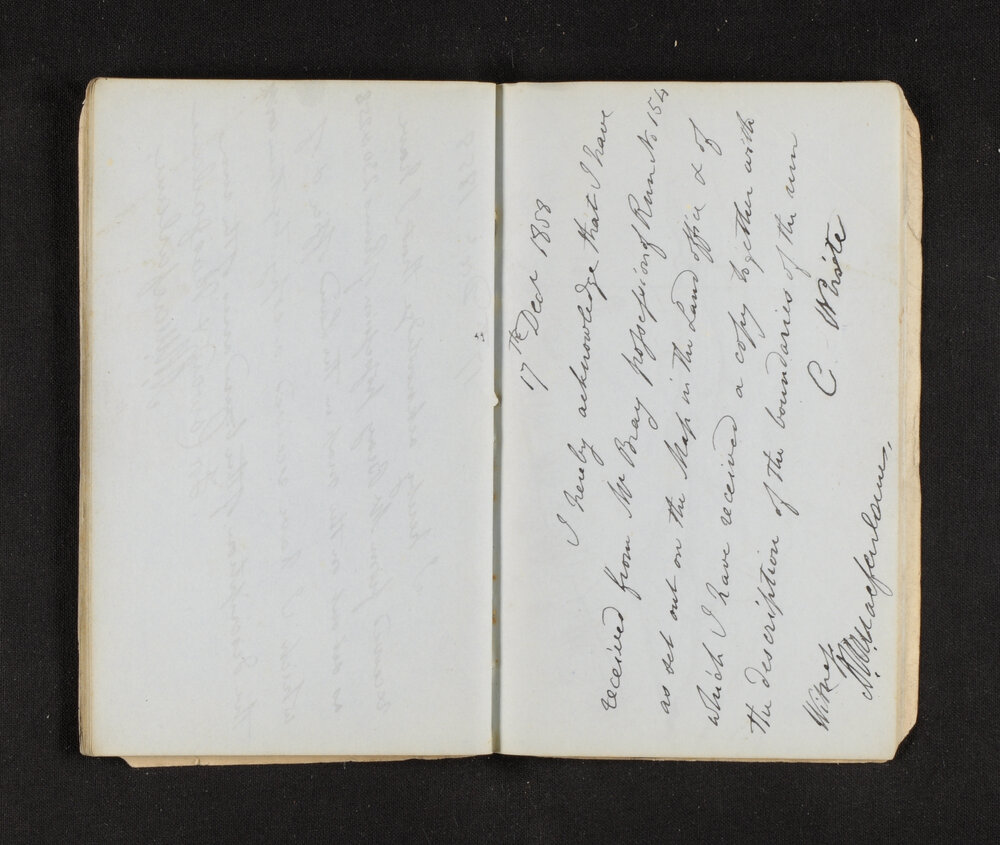 17th Decr 1858
I hereby acknowledge that I have
received from Mr Bray possession of Run No 154
as set out on the Map in the Land office & of
which I have received a copy together with
the description of the boundaries of the run
C. White
Witness
Macfarlane